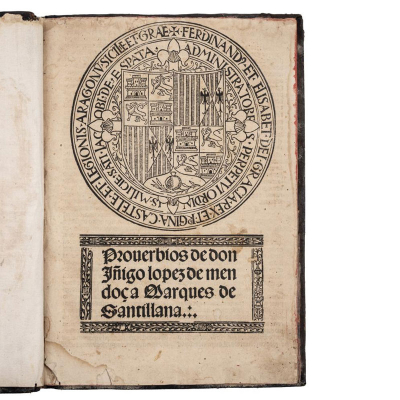 FERDINANDVS·ET·ELISABET·DEI·GRACIA·REX·ET·REGINA·CASTELLE·ET·LEGIONIS·ARAGONV·SICILIE·ET·GRAE
ADMINISTRATORES·PERPETVI·ORDINV·MILICIE·SATI·IACOBI·DE·LESPATA
Prouerbios de don
Jñigo lopez de men
doça Marques de
Santillana.:.